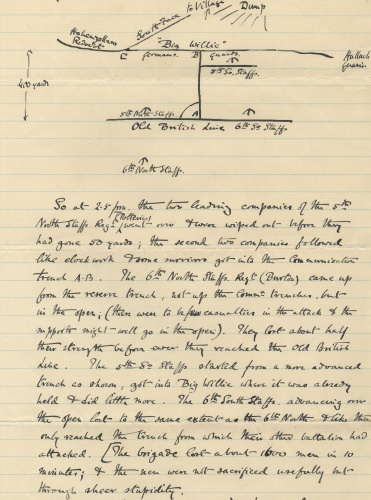 to Village
Dump
South Face
Hohenzollern
Redoubt
"Big Willie"
C
Germans.
B
Guards.
Hulluch
Quarries.
5th So. Staffs.
400 yards
5th North Staffs.
Old British Line
6th So Staffs.
6th North Staffs.
So at 2.5 pm. the two leading companies of the 5th
North Staffs Regt. (Potteries) went over & were wiped out before they
had gone 50 yards; the second two companies followed
like clockwork & some survivors got into the Communication
trench A-B. The 6th North Staffs. Regt. (Burton) came up
from the reserve trench, not up the Commn. trenches, but
in the open; (there were to be few casualties in the attack & the
supports might as well go in the open). They lost about half
their strength before ever they reached the Old British
Line. The 5th So Staffs started from a more advanced
trench as shown, got into Big Willie where it was already
held & did little more. The 6th South Staffs, advancing over
the open lost to the same extent as the 6th North & like them
only reached the trench from which their other battalion had
attacked. [The brigade lost about 1600 men in 10
minutes; & the men were not sacrificed usefully but
through sheer stupidity.